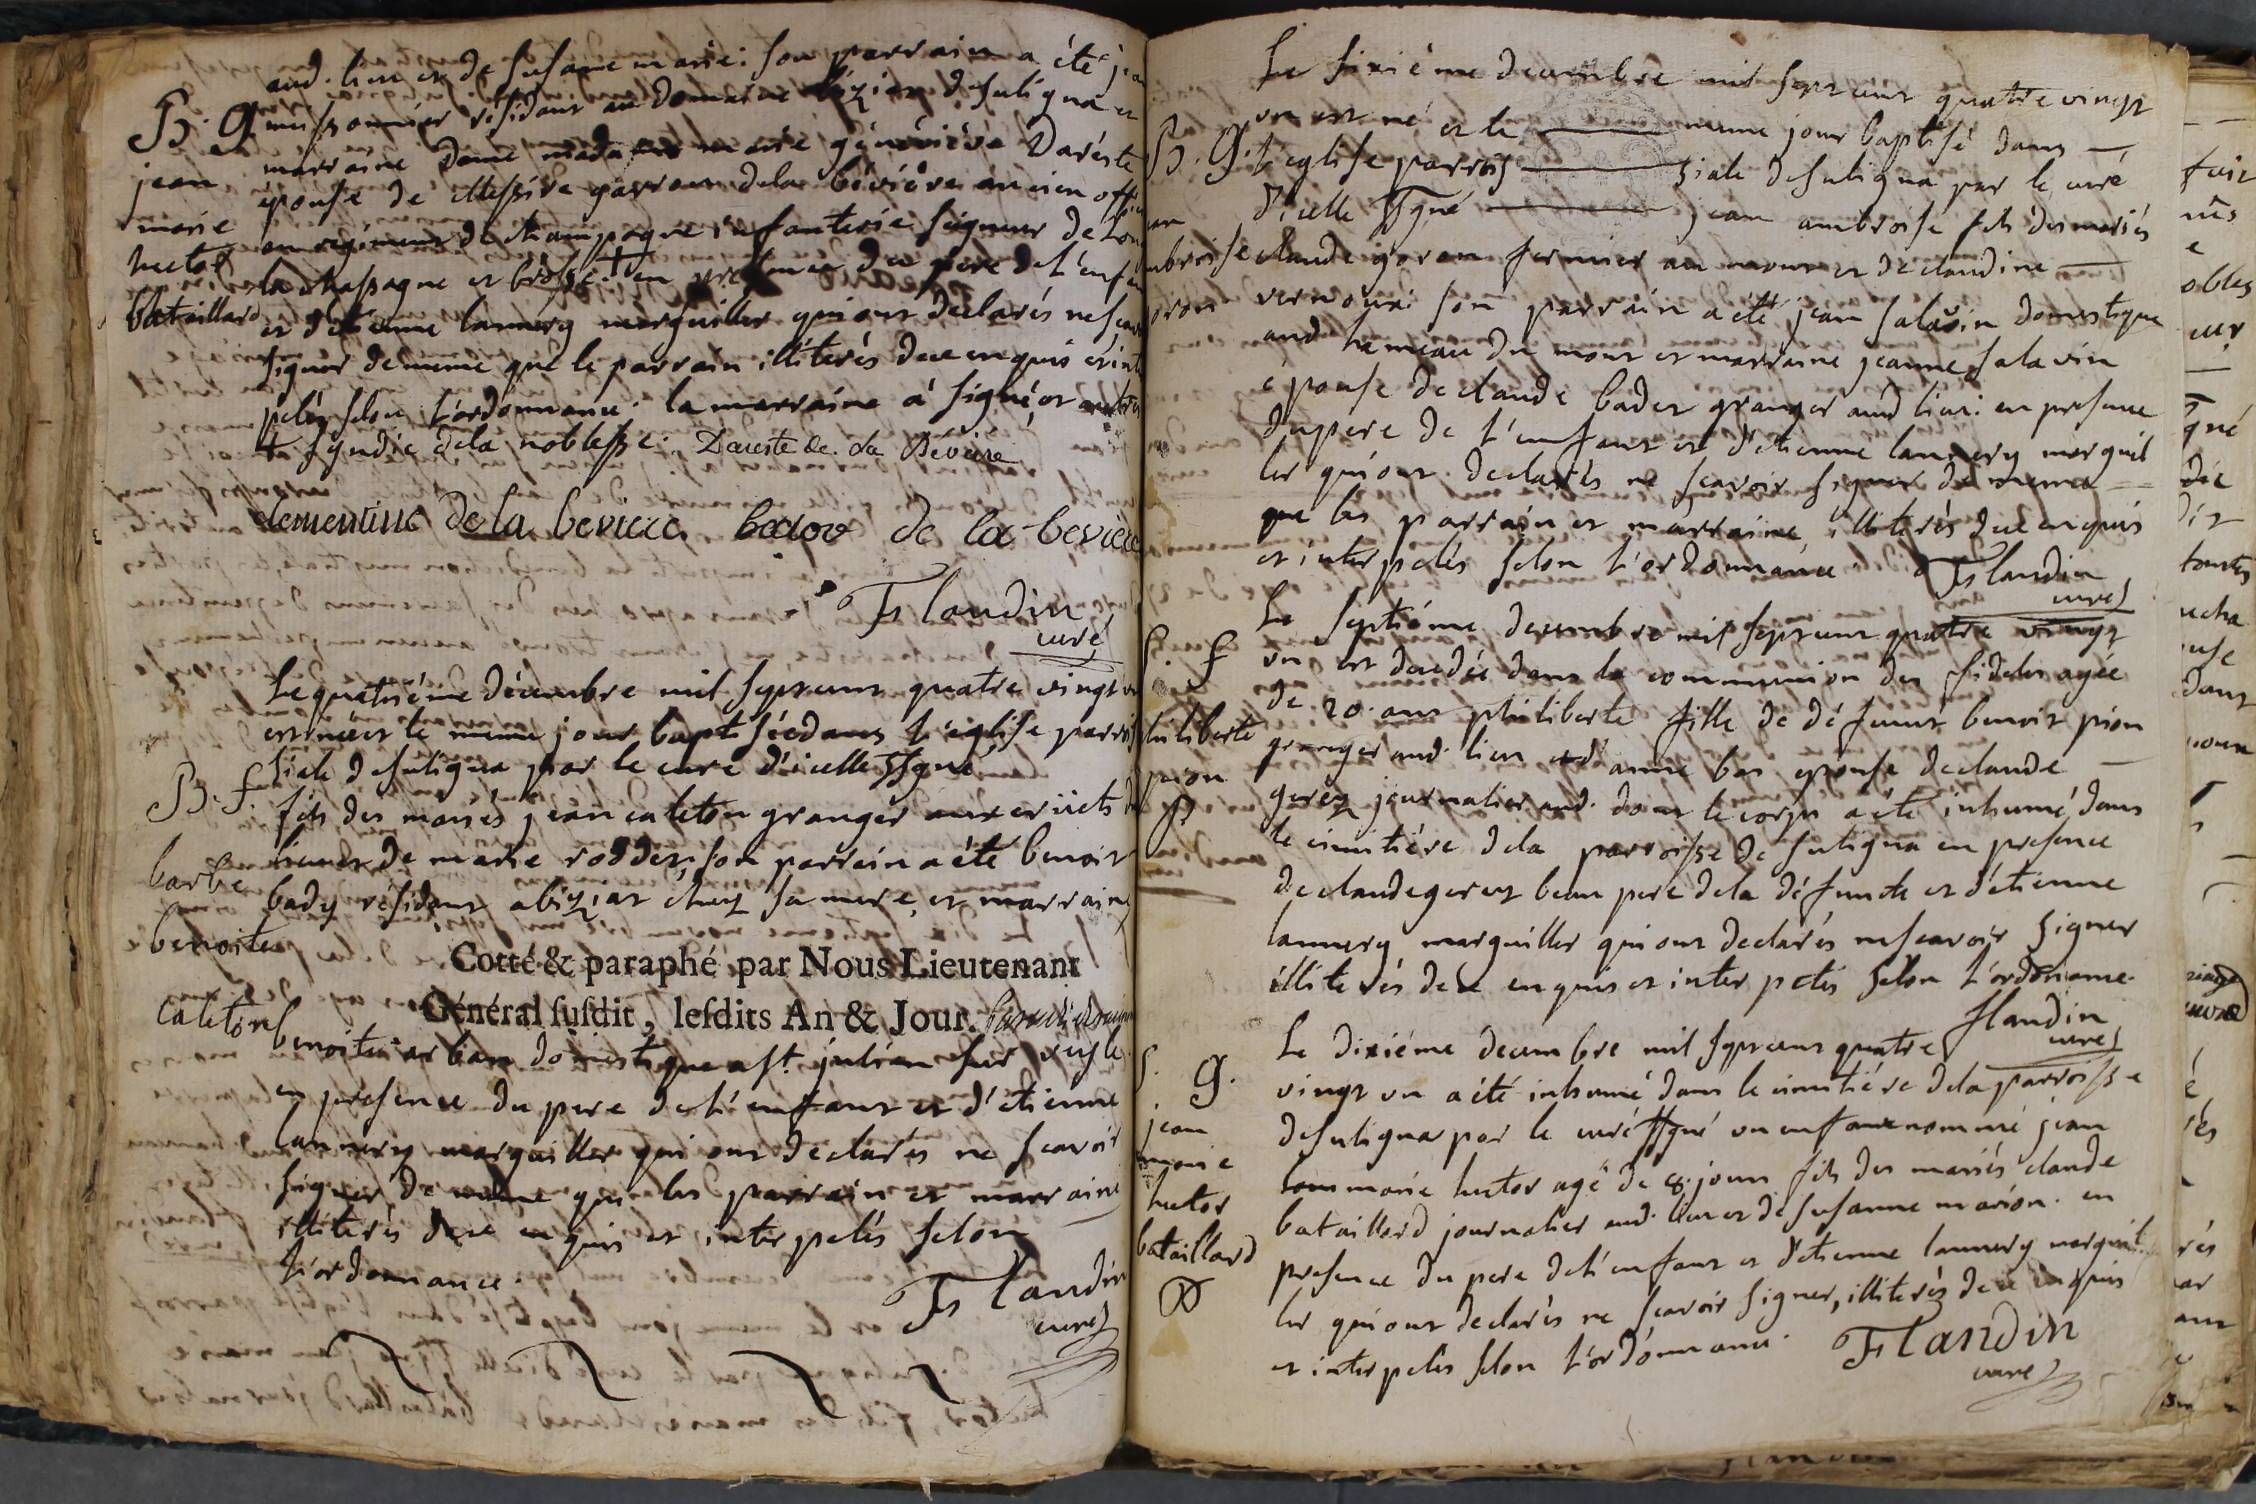 aud. lieu et de susanne marie: son parrain a été jean
B. G meissonnier résidant au domaine bizier de suligna et
marraine dame mada marie généviéve Daréste
jean
épouse de Messire garron de la béviére ancien offi
marie
au régiment de Champagne infanterie seigneur de
hector
la Chassagne et brosse + en presence du pere de l'enfan
bataillard
et d'etienne lannery marguiller qui ont declarés ne scav
signer de meme que le parrain illiterés de ce enquis et int
pelés selon l'ordonnance. la marraine à signé, et
+ syndic de la noblesse. Dareste de. La Béviere
clementine de la beviere hector de la-beviere
Flandin
curé
Le quatriéme décembre mil sept cent quatre vingt un
est née et le meme jour baptisée dans l'eglise parrois
siale de suligna par le curé d'icelle ssgné
B. f.
fils des mariés jean caleton granger aux
lieu et de marie roddez, son parrain a été benoit
barbe
bady résidant a biziat chez sa mere, et marraine
benoite
Cotté & paraphé par Nous Lieutenant
Général susdit, lesdits An & Jour.
caleton
benoite arban domestique a st. julien sur veyle.
en présence du pere de l'enfant et d'etienne
lannery marguiller qui ont declarés ne scavoir
signer de meme que les parrain et marraine
illiterés de ce enquis et interpelés selon
l'ordonnance.
Flandin
curé
Le sixiéme decembre mil sept cent quatre vingt
un est né et le meme jour baptisé dans
B. G. l'eglise parrois siale de suligna par le curé
d'icelle ssgné jean ambroise fils des mariés
ambroise claude goron fermier au mont et de claudine
goron vernoux: son parrain a été jean salavin domestique
aud hameau du mont et marraine jeanne salavin
épouse de claude badet granger aud lieu: en presence
du pere de l'enfant et d'etienne lannery marguil
ler qui ont declarés ne scavoir signer de meme
que les parrain et marraine, illiterés de ce enquis
et interpelés selon l'ordonnance.
Flandin
curé
Le septiéme decembre mil sept cent quatre vingt
S. f
un est decedée dans la communion des fideles agée
de 20. ans philiberte fille de défunt benoit pion
philiberte
granger aud. lieu et d'anne bas epouse de claude
pion
gerey journalier aud. dont le corps a été inhumé dans
le cimitiére de la parroisse de suligna en presence
de claude gerey beau pere de la défunte et d'etienne
lannery marguiller qui ont declarés ne scavoir signer
illiterés de ce enquis et interpelés selon l'ordonance.
Flandin
curé
Le dixiéme decembre mil sept cent quatre
S. G.
vingt un a été inhumé dans le cimitiére de la parroisse
de suligna par le curé ssgné un enfant nommé jean
jean
marie hector agé de 8. jours fils des mariés claude
marie
bataillard journalier aud. lieu et de susanne marion. en
hector
presence du pere de l'enfant et d'etienne lannery marguil
bataillard
ler qui ont declarés ne scavoir signer, illiterés de ce enquis
et interpelés selon l'ordonnance.
Flandin
curé